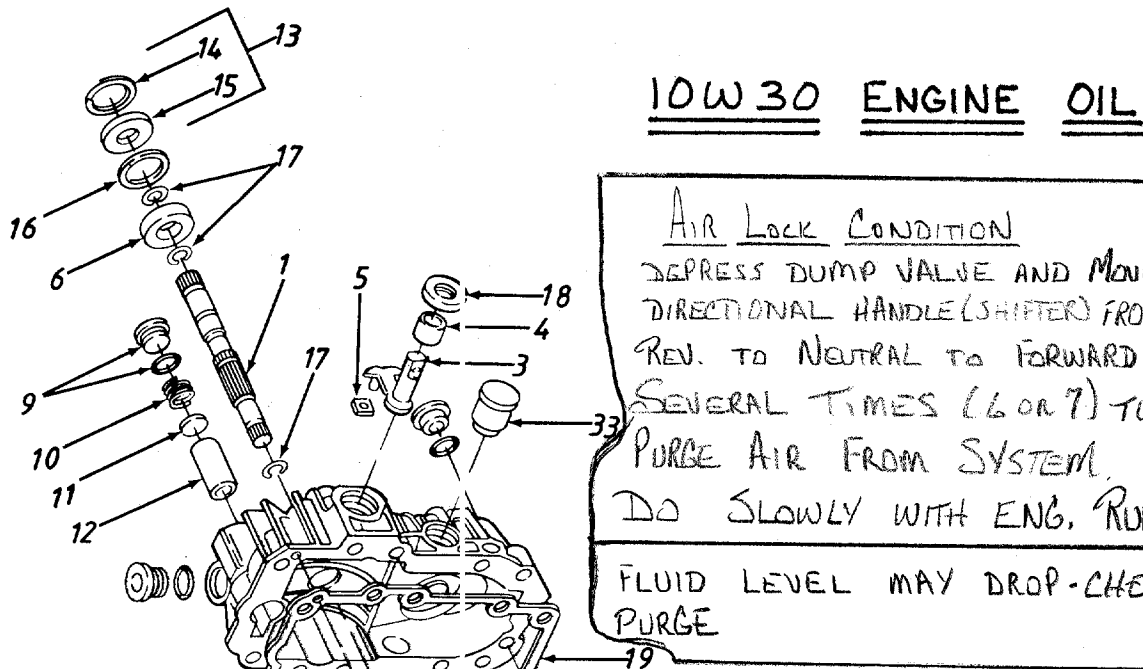 14
13
15
17
16
6
1
5
18
4
3
17
9
10
11
12
33
19
10W30 ENGINE OIL
AIR LOCK CONDITION
DEPRESS DUMP VALVE AND MOV
DIRECTIONAL HANDLE (SHIFTER) FRO
REV. TO NEUTRAL TO FORWARD
SEVERAL TIMES (6 OR 7) TO
PURGE AIR FROM SYSTEM.
DO SLOWLY WITH ENG. RU
FLUID LEVEL MAY DROP-CHE
PURGE